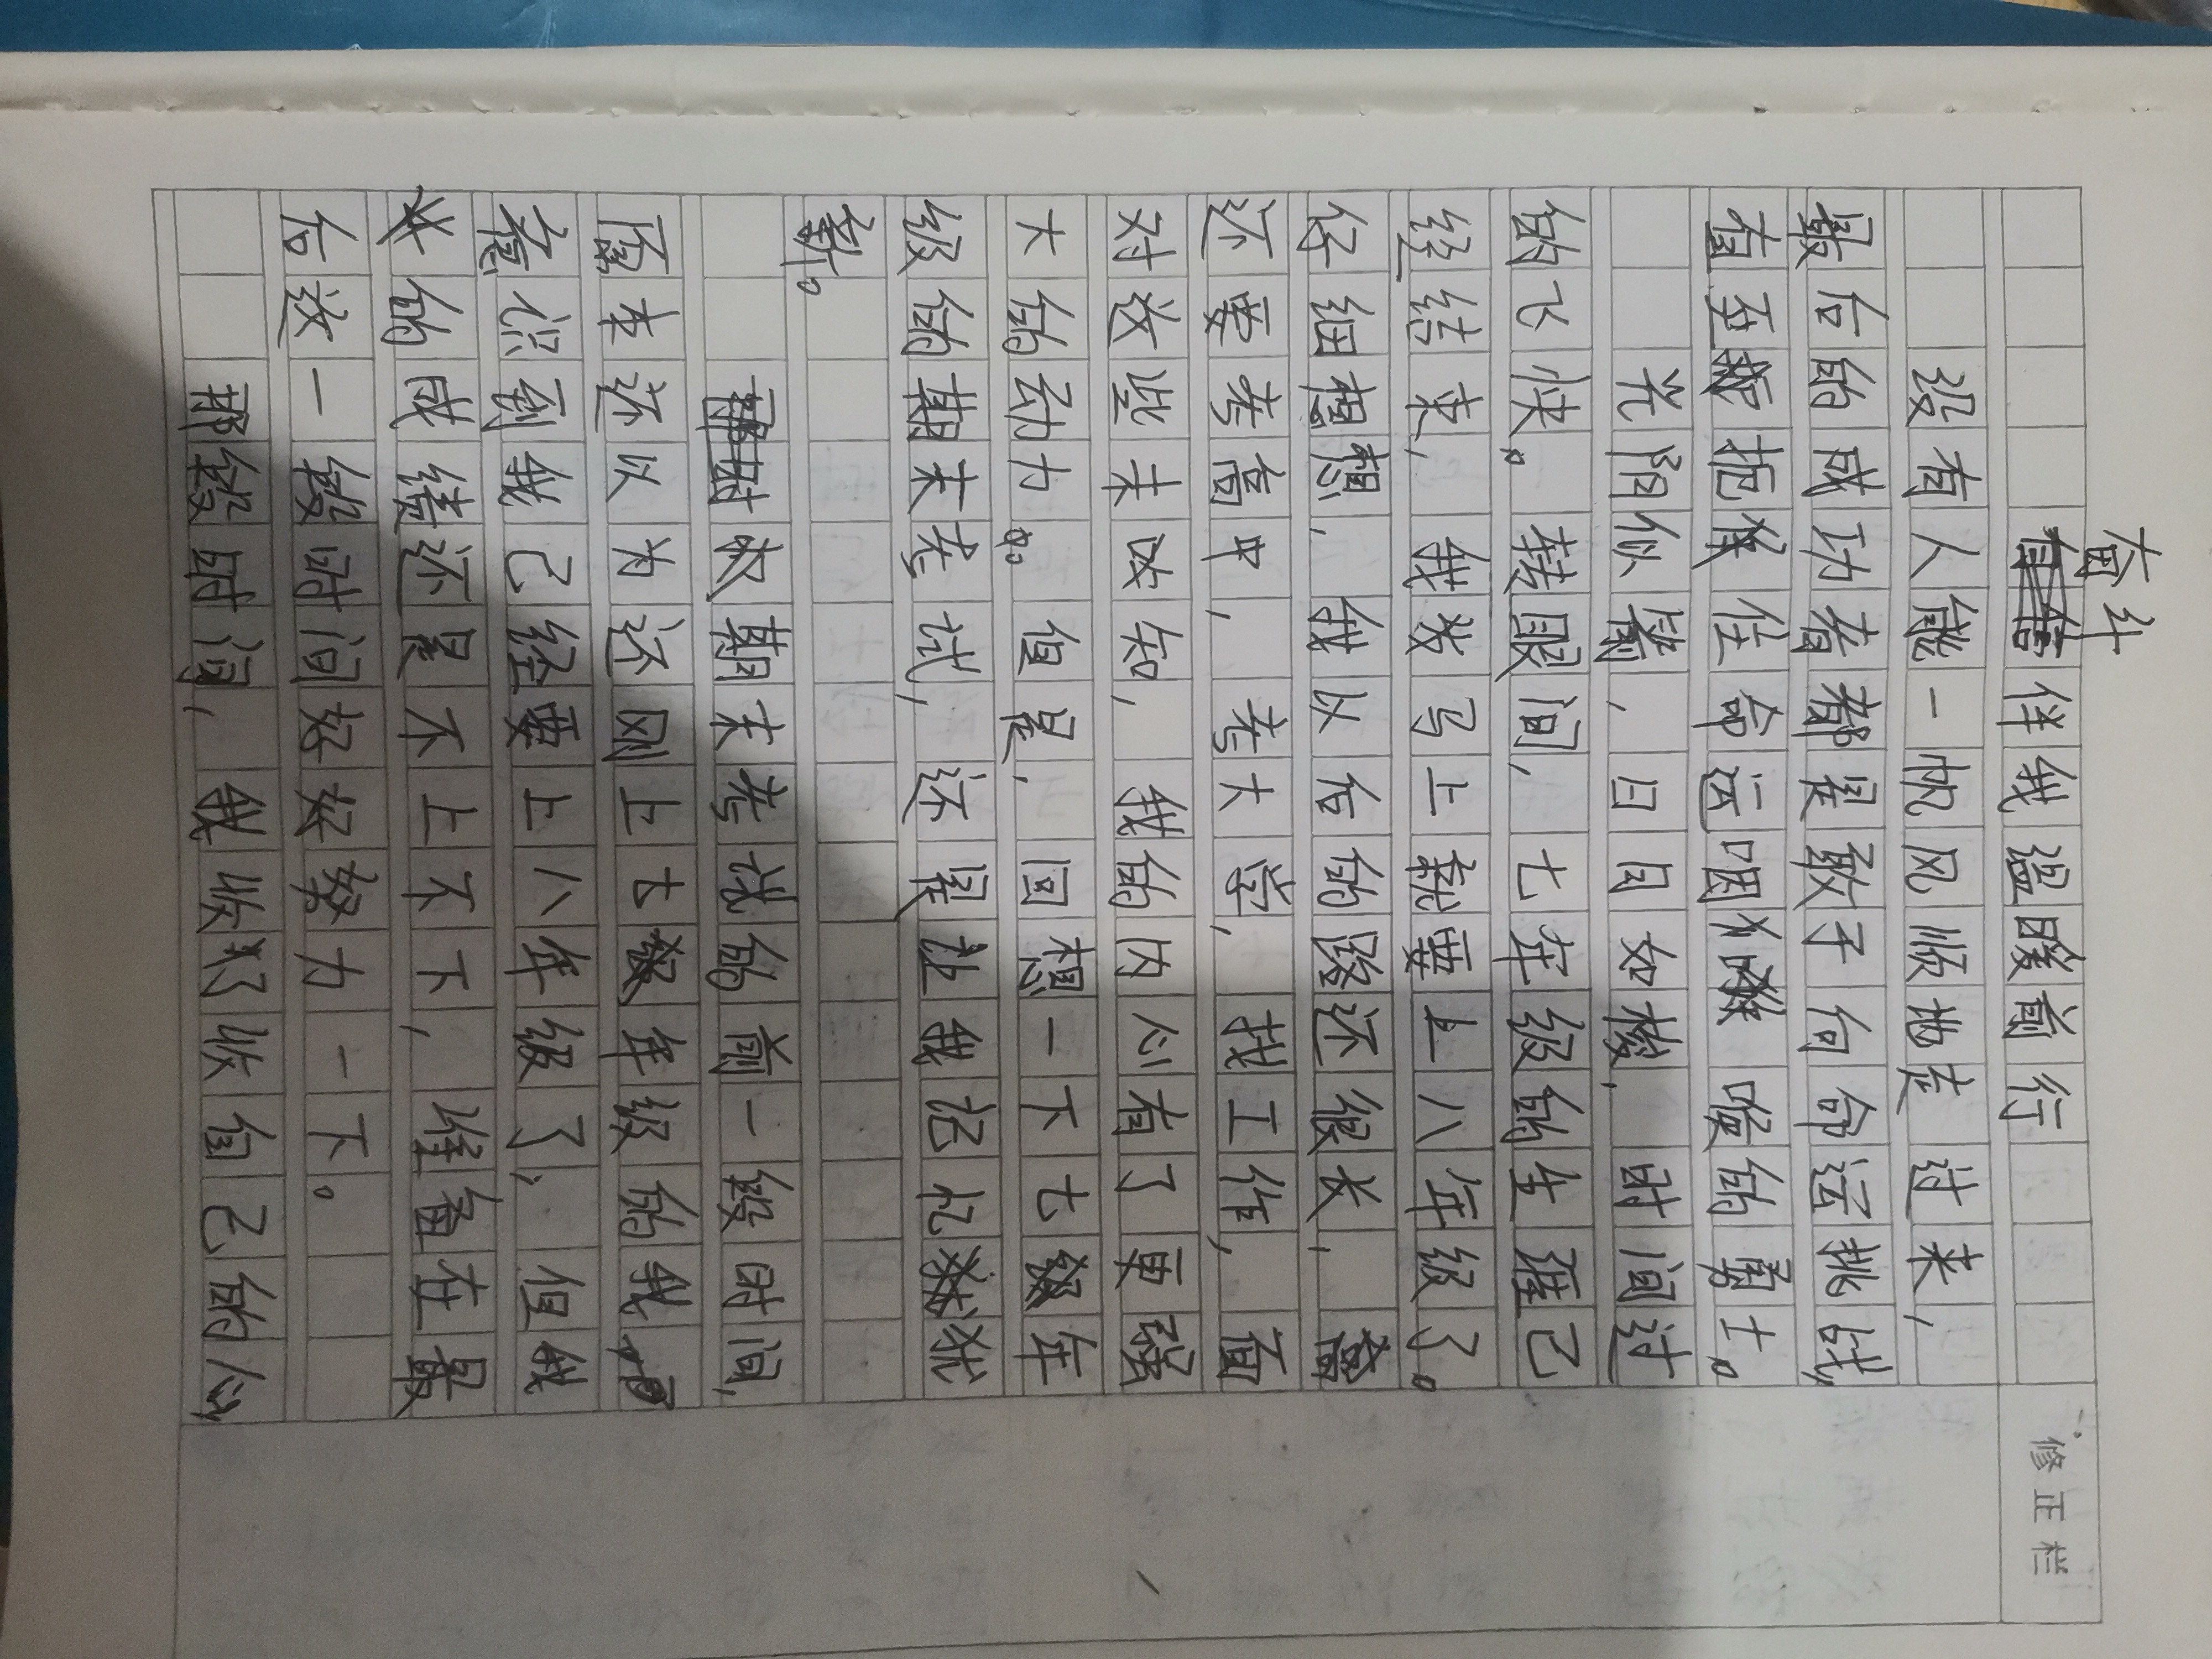 奋斗
伴我温暖前行
没有人能一帆风顺地走过来，
最后的成功者都是敢于向命运挑战，
有至死扼住命运咽喉的勇士。
光阴似箭，日月如梭，时间过
的飞快。转眼间，七年级的生涯已
经结束，我马上就要上八年级了。
仔细想想，我以后的路还很长，
还要考高中，考大学，找工作，面
对这些未改知，我的内心有了更强
大的动力。但是，回想一下七年
级的期末考试，还是让我记忆犹
新。
期末考试的前一段时间，
原来还以为还刚上七年级的我
意识到我已经要上八年级了，但我
的成绩还是不上不下，准备在最
后这一段时间好好努力一下。
那段时间，我收好了自己的心
修正栏